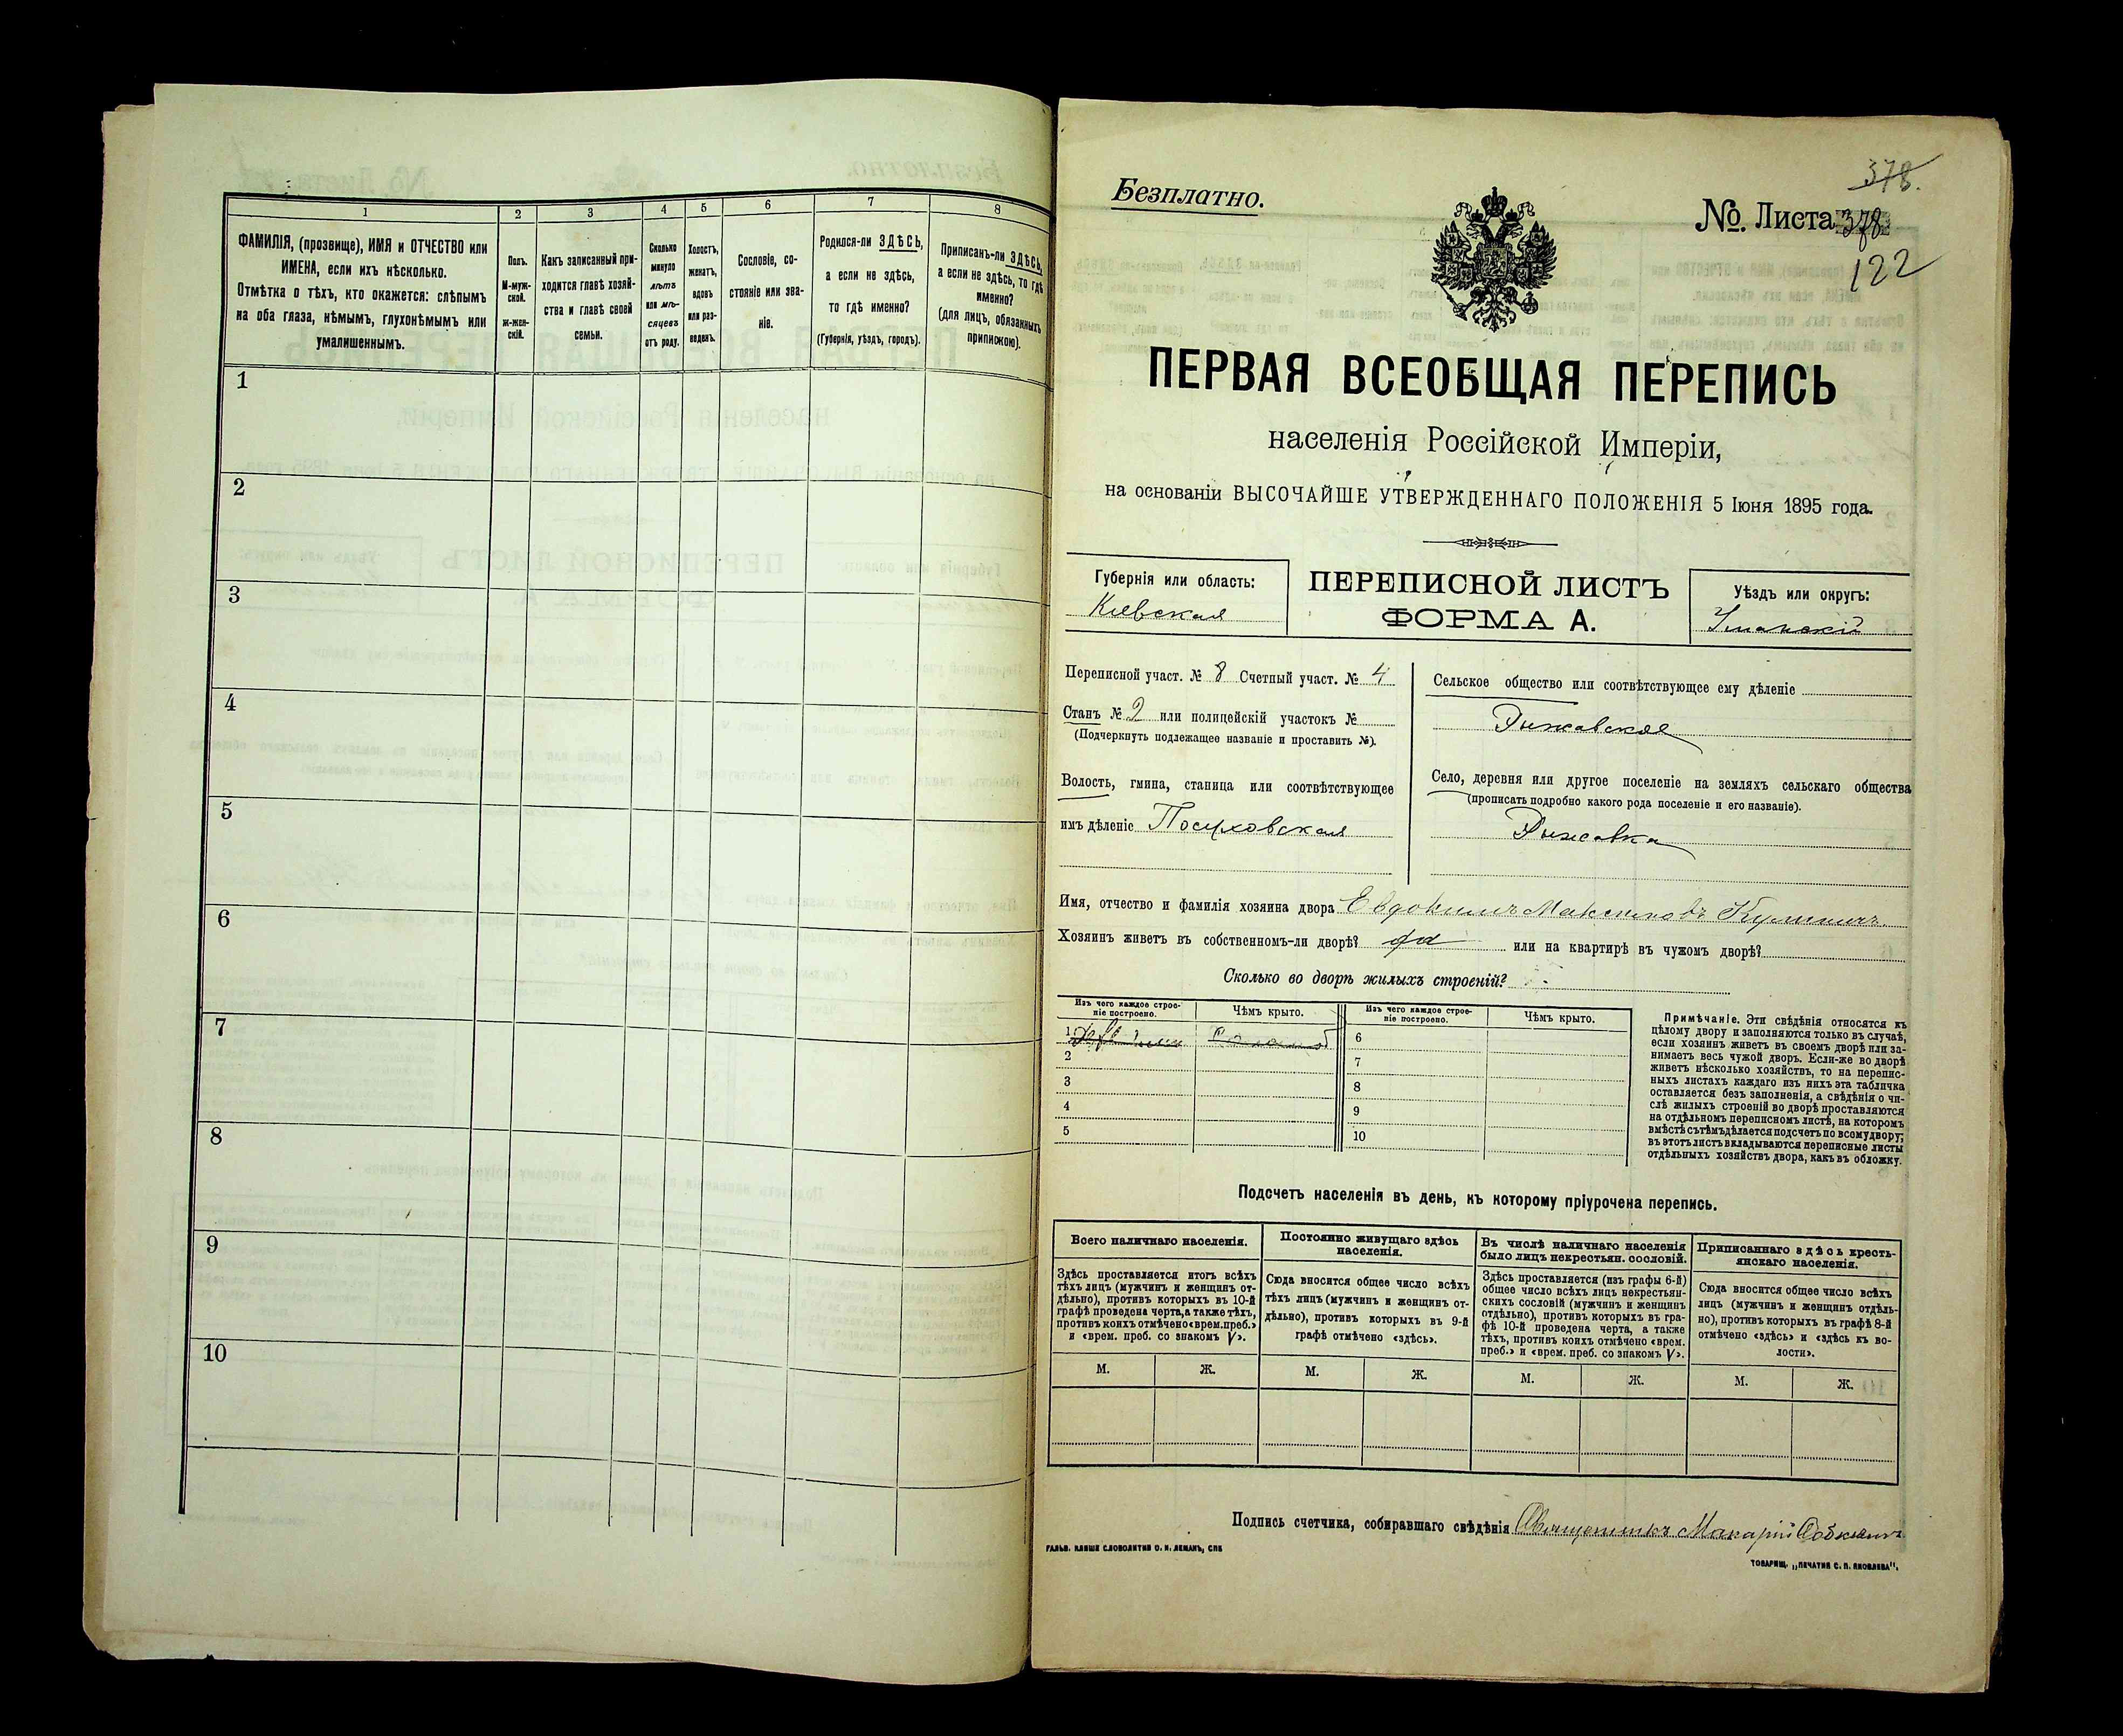 1 2 3 4 5 6 7 8
ФАМИЛІЯ, (прозвище), ИМЯ и ОТЧЕСТВО или
ИМЕНА, если ихъ нѣсколько.
Отмѣтка о тѣхъ, кто окажется: слѣпымъ
на оба глаза, нѣмымъ, глухонѣмымъ или
умалишеннымъ.
Полъ.
М-муж-
ской.
ж-жен-
скій.
Какъ записанный при-
ходится главѣ хозяй-
ства и главѣ своей
семьи.
Сколько
минуло
лѣтъ
или мѣ-
сяцевъ
отъ роду.
Холостъ,
женатъ,
вдовъ
или раз-
веденъ.
Сословіе, со-
стояніе или зва-
ніе.
Родился-ли ЗДѢСЬ,
а если не здѣсь,
то гдѣ именно?
(Губернія, уѣздъ, городъ).
Приписанъ-ли ЗДѢСЬ,
а если не здѣсь, то гдѣ
именно?
(для лицъ, обязанныхъ
припискою).
1
2
3
4
5
6
7
8
9
10
378.
Безплатно.
№. Листа 378
122
ПЕРВАЯ ВСЕОБЩАЯ ПЕРЕПИСЬ
населенія Россійской Имперіи,
на основаніи ВЫСОЧАЙШЕ УТВЕРЖДЕННАГО ПОЛОЖЕНІЯ 5 Іюня 1895 года.
Губернія или область:
Кіевская
ПЕРЕПИСНОЙ ЛИСТЪ
ФОРМА А.
Уѣздъ или округъ:
Уманскій
Переписной участ. № 8 Счетный участ. № 4
Станъ № 2 или полицейскій участокъ №
(Подчеркнуть подлежащее названіе и проставить №).
Волость, гмина, станица или соотвѣтствующее
имъ дѣленіе Посуховская
Сельское общество или соотвѣтствующее ему дѣленіе
Рыжавское
Село, деревня или другое поселеніе на земляхъ сельскаго общества
(прописать подробно какого рода поселеніе и его названіе).
Рыжавка
Имя, отчество и фамилія хозяина двора Евдокимъ Максимовъ
Хозяинъ живетъ въ собственномъ-ли дворѣ? да или на квартирѣ въ чужомъ дворѣ?
Сколько во дворѣ жилыхъ строеній?
Изъ чего каждое строе-
ніе построено.
Чѣмъ крыто.
Изъ чего каждое строе-
ніе построено.
Чѣмъ крыто.
1 6
2 7
3 8
4 9
5 10
Примѣчаніе. Эти свѣдѣнія относятся къ
цѣлому двору и заполняются только въ случаѣ,
если хозяинъ живетъ въ своемъ дворѣ или за-
нимаетъ весь чужой дворъ. Если-же во дворѣ
живетъ нѣсколько хозяйствъ, то на перепис-
ныхъ листахъ каждаго изъ нихъ эта табличка
оставляется безъ заполненія, а свѣдѣнія о чи-
слѣ жилыхъ строеній во дворѣ проставляются
на отдѣльномъ переписномъ листѣ, на которомъ
вмѣстѣ съ тѣмъ дѣлается подсчетъ по всему двору;
въ этотъ листъ вкладываются переписные листы
отдѣльныхъ хозяйствъ двора, какъ въ обложку.
Подсчетъ населенія въ день, къ которому пріурочена перепись.
Всего наличнаго населенія.
Здѣсь проставляется итогъ всѣхъ
тѣхъ лицъ (мужчинъ и женщинъ от-
дѣльно), противъ которыхъ въ 10-й
графѣ проведена черта, а также тѣхъ,
противъ коихъ отмѣчено «врем. преб.»
и «врем. преб. со знакомъ V».
Постоянно живущаго здѣсь
населенія.
Сюда вносится общее число всѣхъ
тѣхъ лицъ (мужчинъ и женщинъ от-
дѣльно), противъ которыхъ въ 9-й
графѣ отмѣчено «здѣсь».
Въ числѣ наличнаго населенія
было лицъ некрестьян. сословій.
Здѣсь проставляется (изъ графы 6-й)
общее число всѣхъ лицъ некрестьян-
скихъ сословій (мужчинъ и женщинъ
отдѣльно), противъ которыхъ въ гра-
фѣ 10-й проведена черта, а также
тѣхъ, противъ коихъ отмѣчено «врем.
преб.» и «врем. преб. со знакомъ V».
Приписаннаго здѣсь кресть-
янскаго населенія.
Сюда вносится общее число всѣхъ
лицъ (мужчинъ и женщинъ отдѣль-
но), противъ которыхъ въ графѣ 8-й
отмѣчено «здѣсь» и «здѣсь къ во-
лости».
М. Ж. М. Ж. М. Ж. М. Ж.
Подпись счетчика, собиравшаго свѣдѣнія Священникъ Макарій
ГАЛЬВ. КЛИШЕ СЛОВОЛИТНИ О. И. ЛЕМАНЪ, СПБ
ТОВАРИЩ. „ПЕЧАТНЯ С. П. ЯКОВЛЕВА".